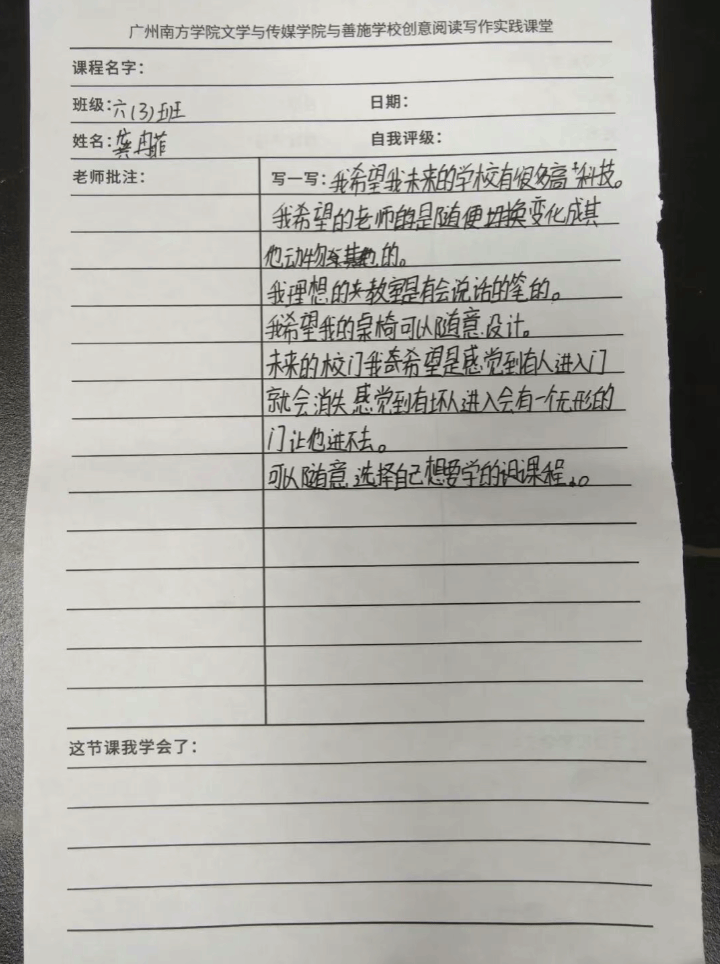 广州南方学院文学与传媒学院与善施学校创意阅读写作实践课堂
课程名字：
班级：六(3)班 日期：
姓名：龚冉菲 自我评级：
老师批注： 写一写：我希望我未来的学校有很多高科技。
我希望的老师的是随便切换变化成其
他动物的。
我理想的教室是有会说话的笔的。
我希望我的桌椅可以随意设计。
未来的校门我希望是感觉到有人进入门
就会消失感觉到有坏人进入会有一个无形的
门让他进不去。
可以随意选择自己想要学的课程。
这节课我学会了：